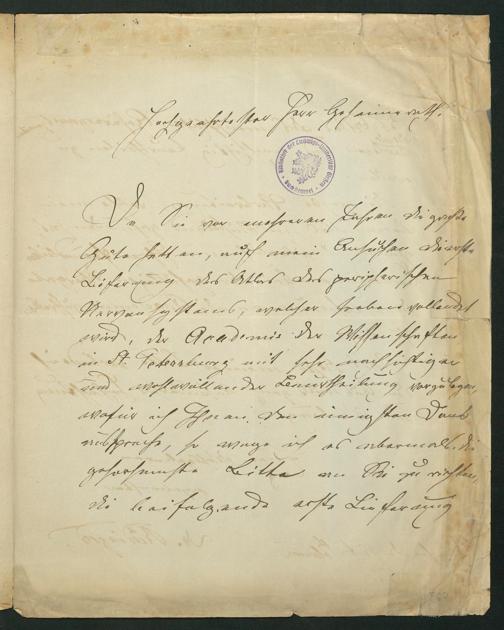 Hochgeehrtester Herr Geheimerath.
Da Sie vor mehreren Jahren die große
Güte hatten, auf mein Ansuchen die erste
Lieferung des Atlas des peripherischen
Nervensystems, welcher soeben vollendet
wird, der Academie der Wissenschaften
in St. Petersburg mit sehr nachsichtiger
und wohlwollender Beurtheilung vorzulegen,
wofür ich Ihnen den innigsten Dank
ausspreche, so wage ich es abermals die
gehorsamste Bitte an Sie zu richten,
die beifolgende erste Lieferung